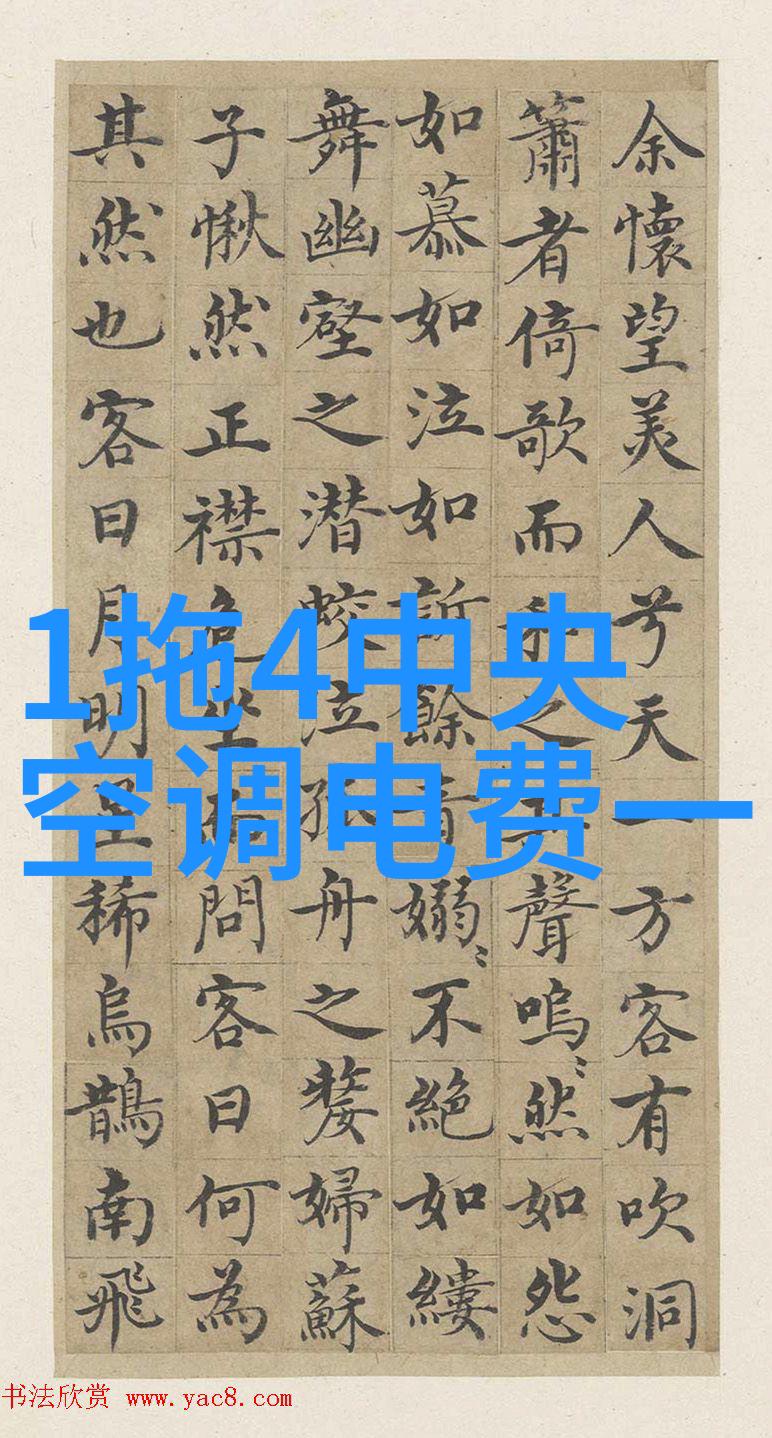 余懷望美人兮天一方客有吹洞
簫者倚歌而和之其聲嗚〻然如怨
如慕如泣如訴餘音嫋〻不絕如縷
舞幽壑之潜蛟泣孤舟之嫠婦蘇
子愀然正襟危坐而問客曰何為
其然也客曰月明星稀烏鵲南飛
1拖4中央
空调电费一
书法欣赏 www.yac8.com